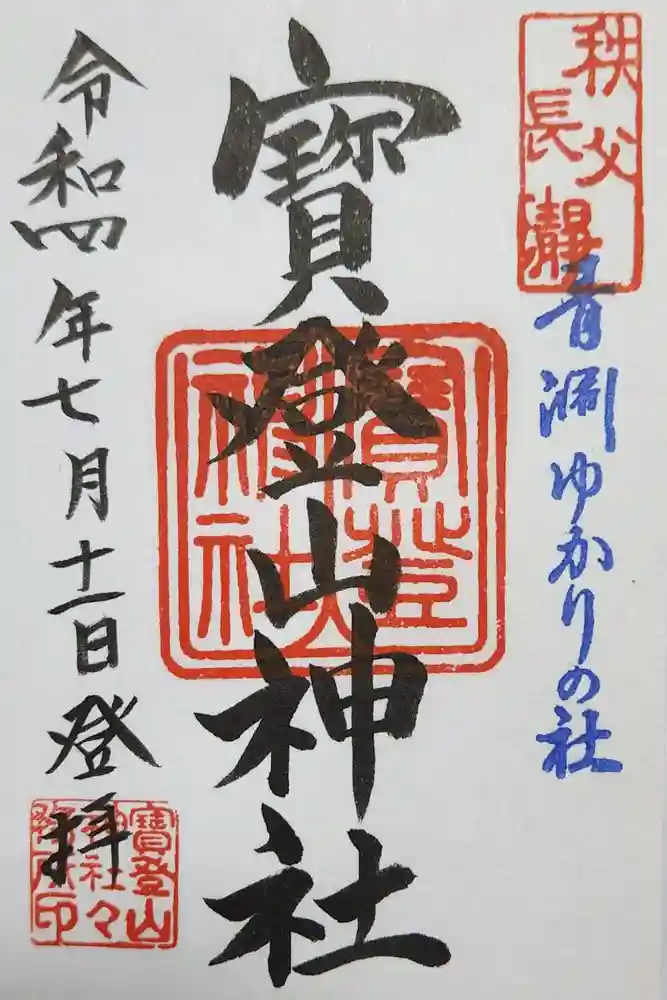 秩父
長瀞
青淵ゆかりの社
寳登山神社
寳登
神社
令和四年七月十一日登拝
寳登山
神社々
務所印